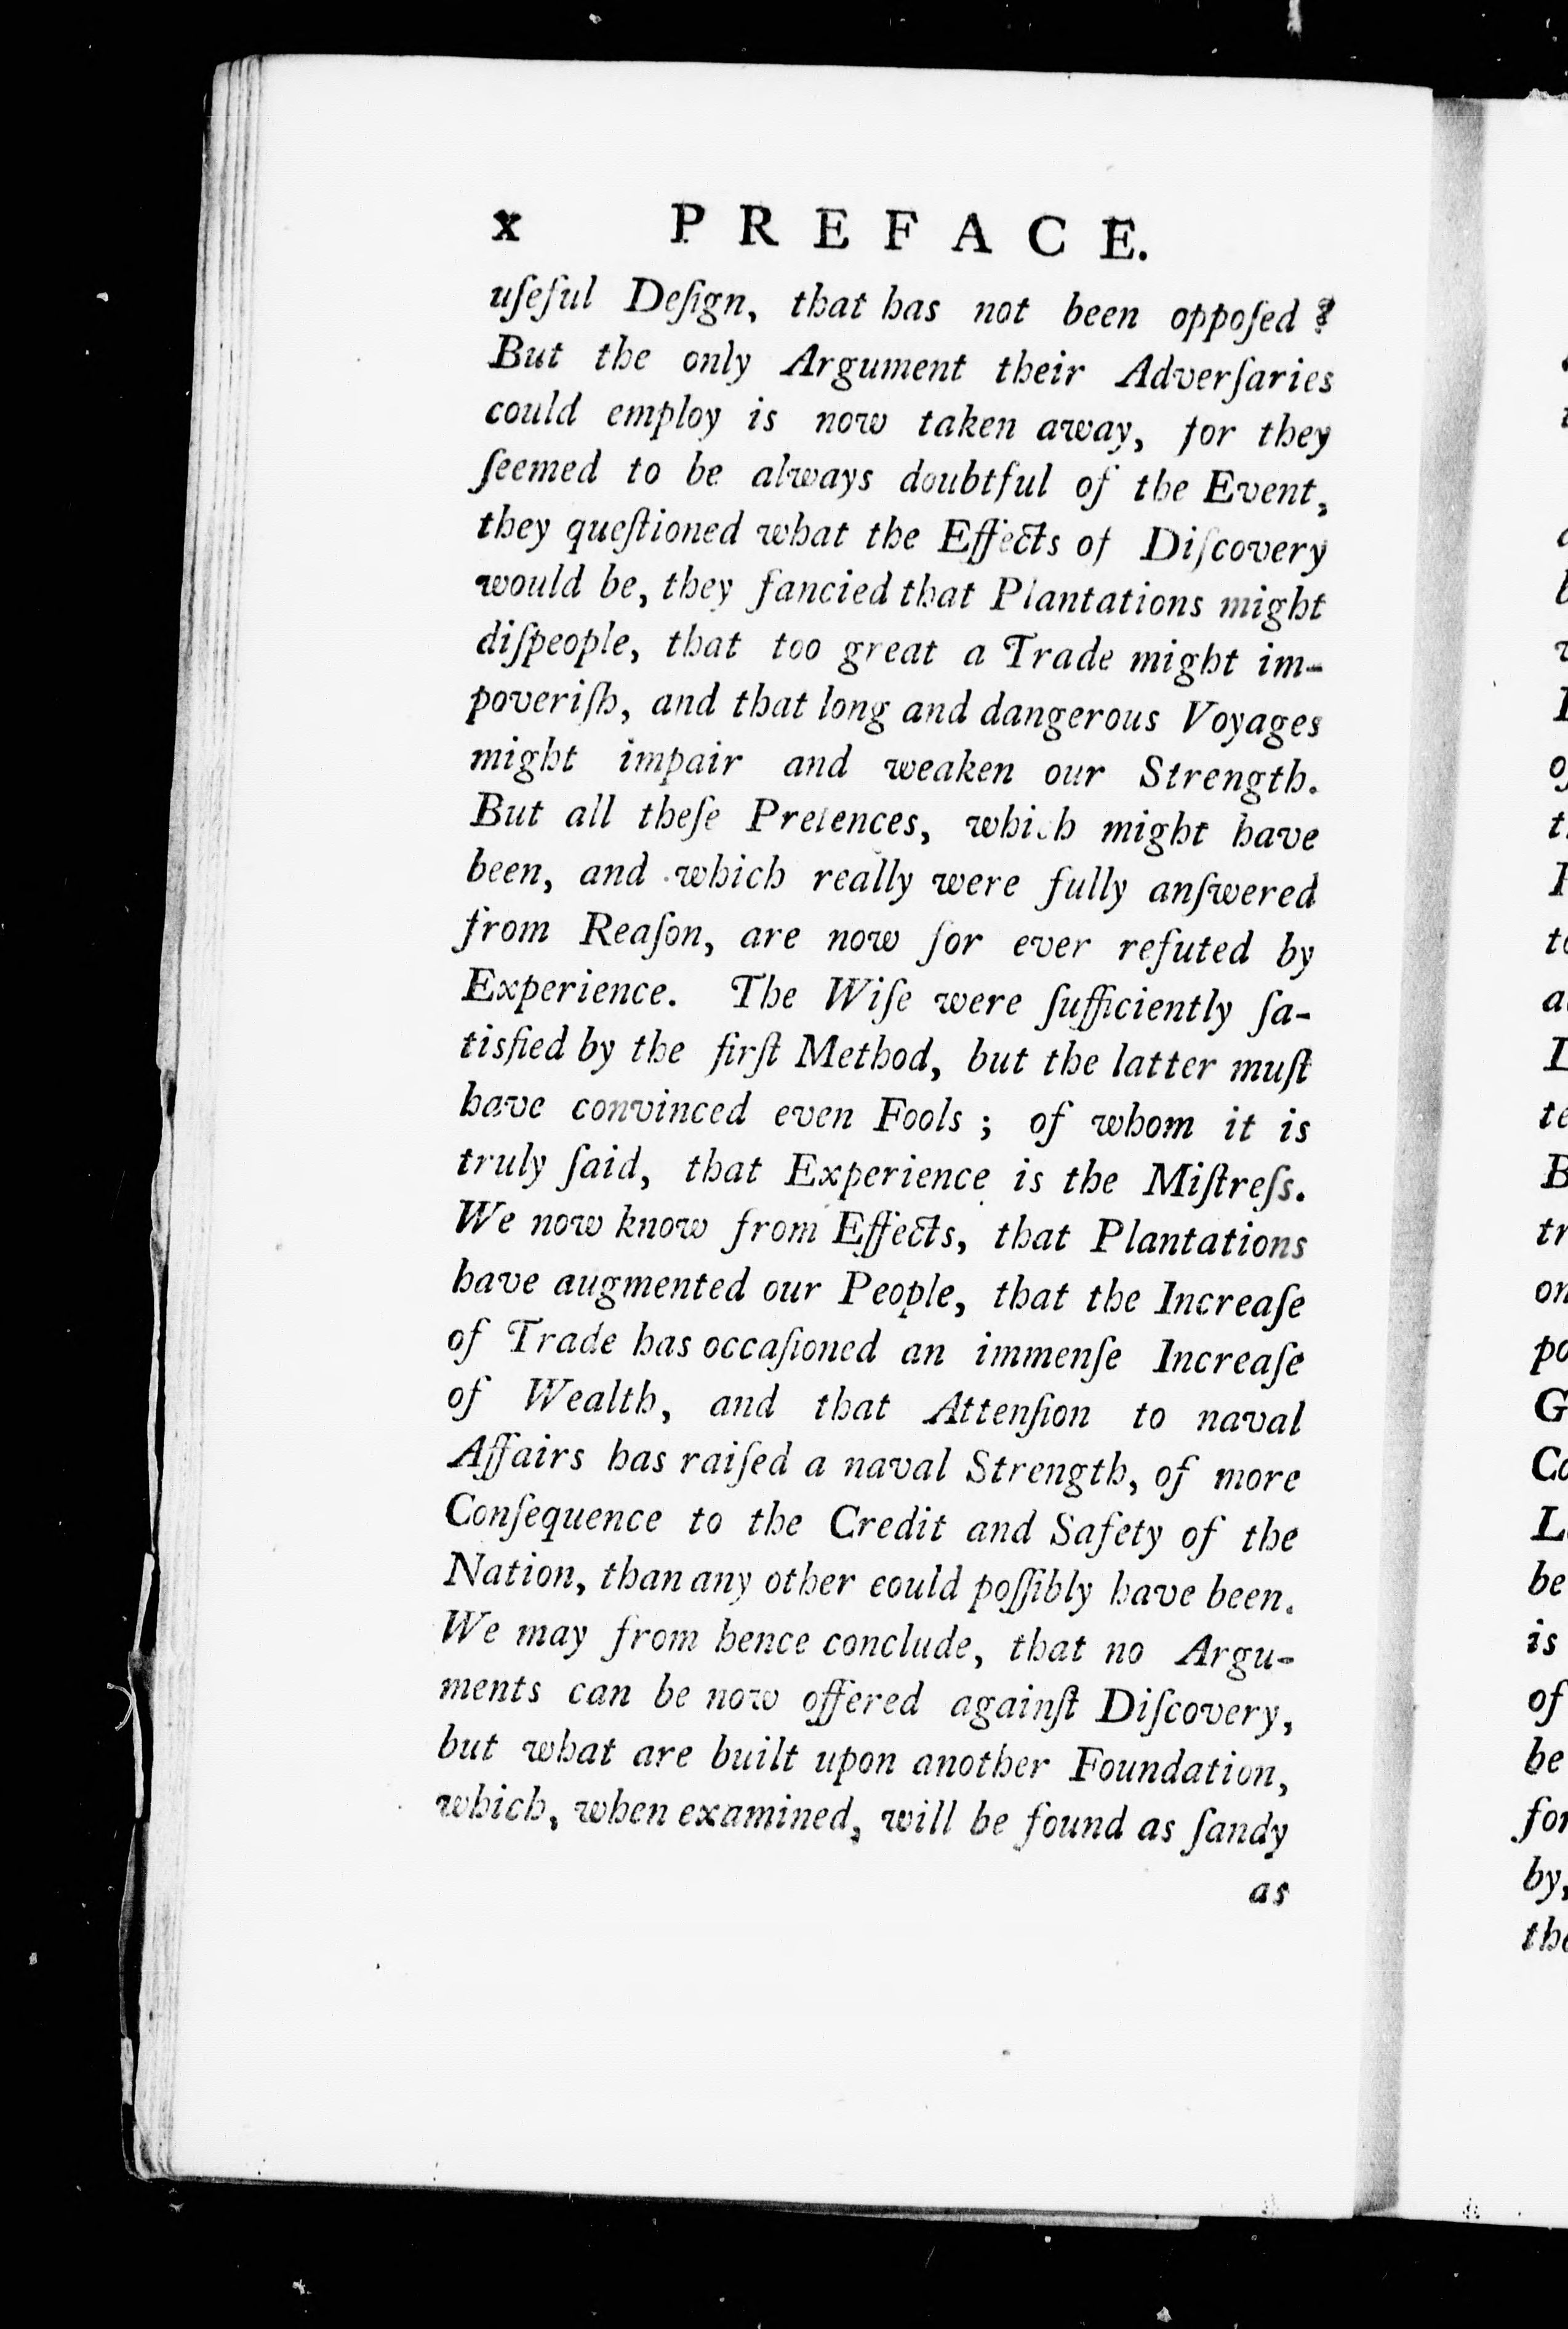 x P R E F A C E.
uſeful Deſign, that has not been oppoſed ?
But the only Argument their Adverſaries
could employ is now taken away, for they
ſeemed to be always doubtful of the Event,
they queſtioned what the Effects of Diſcovery
would be, they fancied that Plantations might
diſpeople, that too great a Trade might im-
poveriſh, and that long and dangerous Voyages
might impair and weaken our Strength.
But all theſe Pretences, which might have
been, and which really were fully anſwered
from Reaſon, are now for ever refuted by
Experience. The Wiſe were ſufficiently ſa-
tisfied by the firſt Method, but the latter muſt
have convinced even Fools ; of whom it is
truly ſaid, that Experience is the Miſtreſs.
We now know from Effects, that Plantations
have augmented our People, that the Increaſe
of Trade has occaſioned an immenſe Increaſe
of Wealth, and that Attenſion to naval
Affairs has raiſed a naval Strength, of more
Conſequence to the Credit and Safety of the
Nation, than any other could poſſibly have been.
We may from hence conclude, that no Argu-
ments can be now offered againſt Diſcovery,
but what are built upon another Foundation,
which, when examined, will be found as ſandy
as